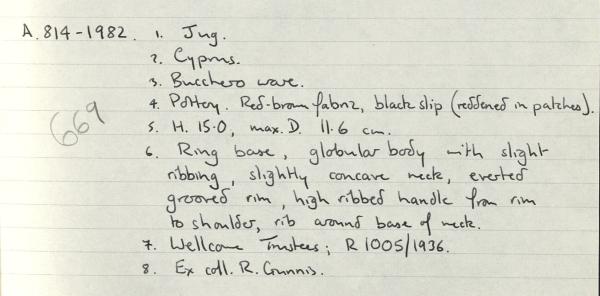 A.814-1982. 1. Jug.
2. Cyprus.
3. Bucchero ware.
4. Pottery. Red-brown fabric, black slip (reddened in patches).
669
5. H. 15.0, max. D. 11.6 cm.
6. Ring base, globular body with slight
ribbing, slightly concave neck, everted
grooved rim, high ribbed handle from rim
to shoulder, rib around base of neck.
7. Wellcome Trustees; R 1005/1936.
8. Ex coll. R. Gunnis.